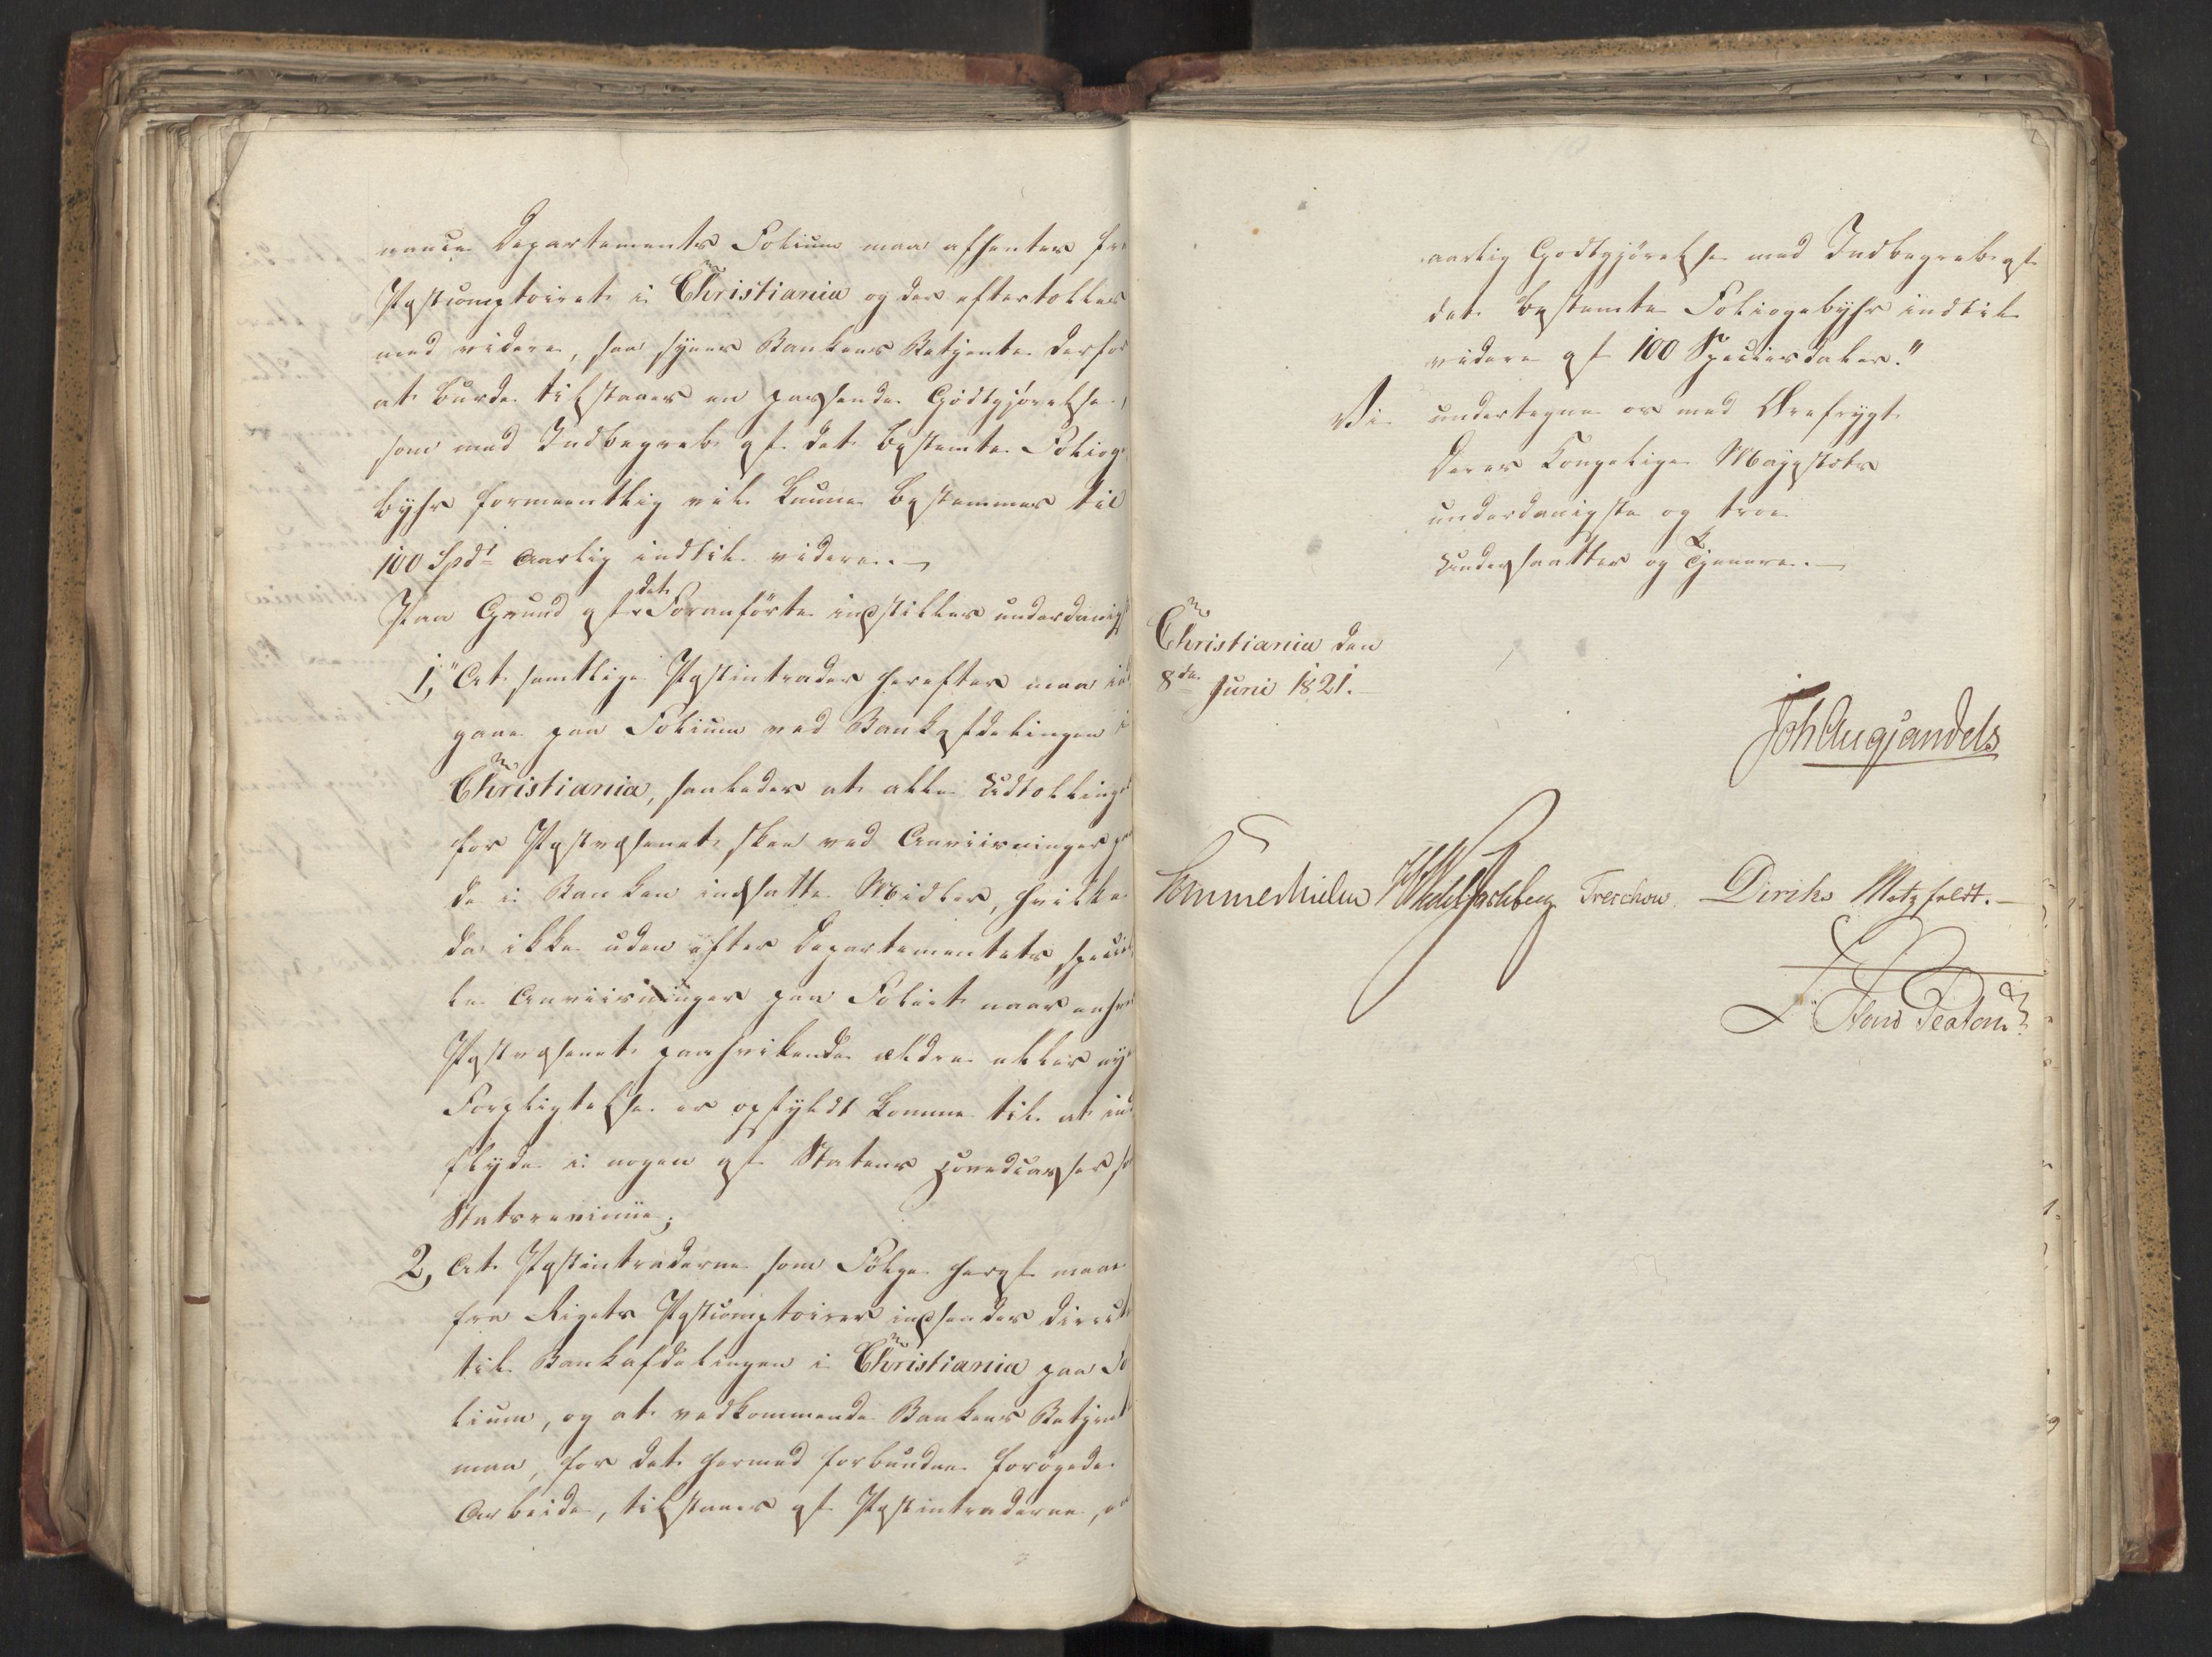 nance Departements Folium maa afhentes fra
Postcomptoiret i Christiania og der eftertælles
med videre, saa synes Bankens Betjente derfor
at burde tilstaaes en passende Godtgjørelse,
som med Indbegreb af det bestemte Folioge
byhr formeentlig vil kunne bestemmes til
100 Spd aarlig indtil videre. —
Paa Grund af det Foranförte indstilles underdanigst
1, "At samtlige Postintrader herefter maa ind
gaae paa Folium ved Bankafdelingen i
Christiania, saaledes at alle Udtællinger
for Postvæsenet, skee ved Anviisninger paa
de i Banken indsatte Midler, hvilke
da ikke uden efter Departementets speciel
le Anviisninger paa Foliet naar enhver
Postvæsenet paahvilende ældre eller nye
Forpligtelse er opfyldt komme til at ind
flyde i nogen af Statens Hovedcasser som
Statsrevenüe;
2, At Postintraderne som Fölge heraf maae
fra Rigets Postcomptoirer indsendes directe
til Bankafdelingen i Christiania paa Fo
lium, og at vedkommende Bankens Betjent
maa, for det hermed forbundne forögede
Arbeide, tilstaaes af Postintraderne, en
aarlig Godtgjörelse med Indbegreb af
det bestemte Foliogebyhr indtil
videre af 100 Speciesdaler."
Vi undertegne os med Ærefrygt
Deres Kongelige Majestæts
underdanigste og troe
Undersaatter og Tjenere. —
Christiania den
8de Juni 1821.
Joh Aug Sandels
Sommerhielm HWedelJarlsberg Treschow. Diriks Motzfeldt. —